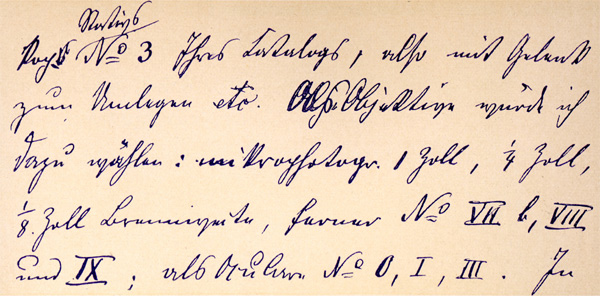 Stativs
No 3 Ihres Catalogs, also mit Gelenk
zum Umlegen etc. Objektive würde ich
dazu wählen: mikrophotogr. 1 Zoll, 1/4 Zoll,
1/8. Zoll Brennweite, ferner No VII b, VIII
und IX; als Oculare No 0, I, III. In